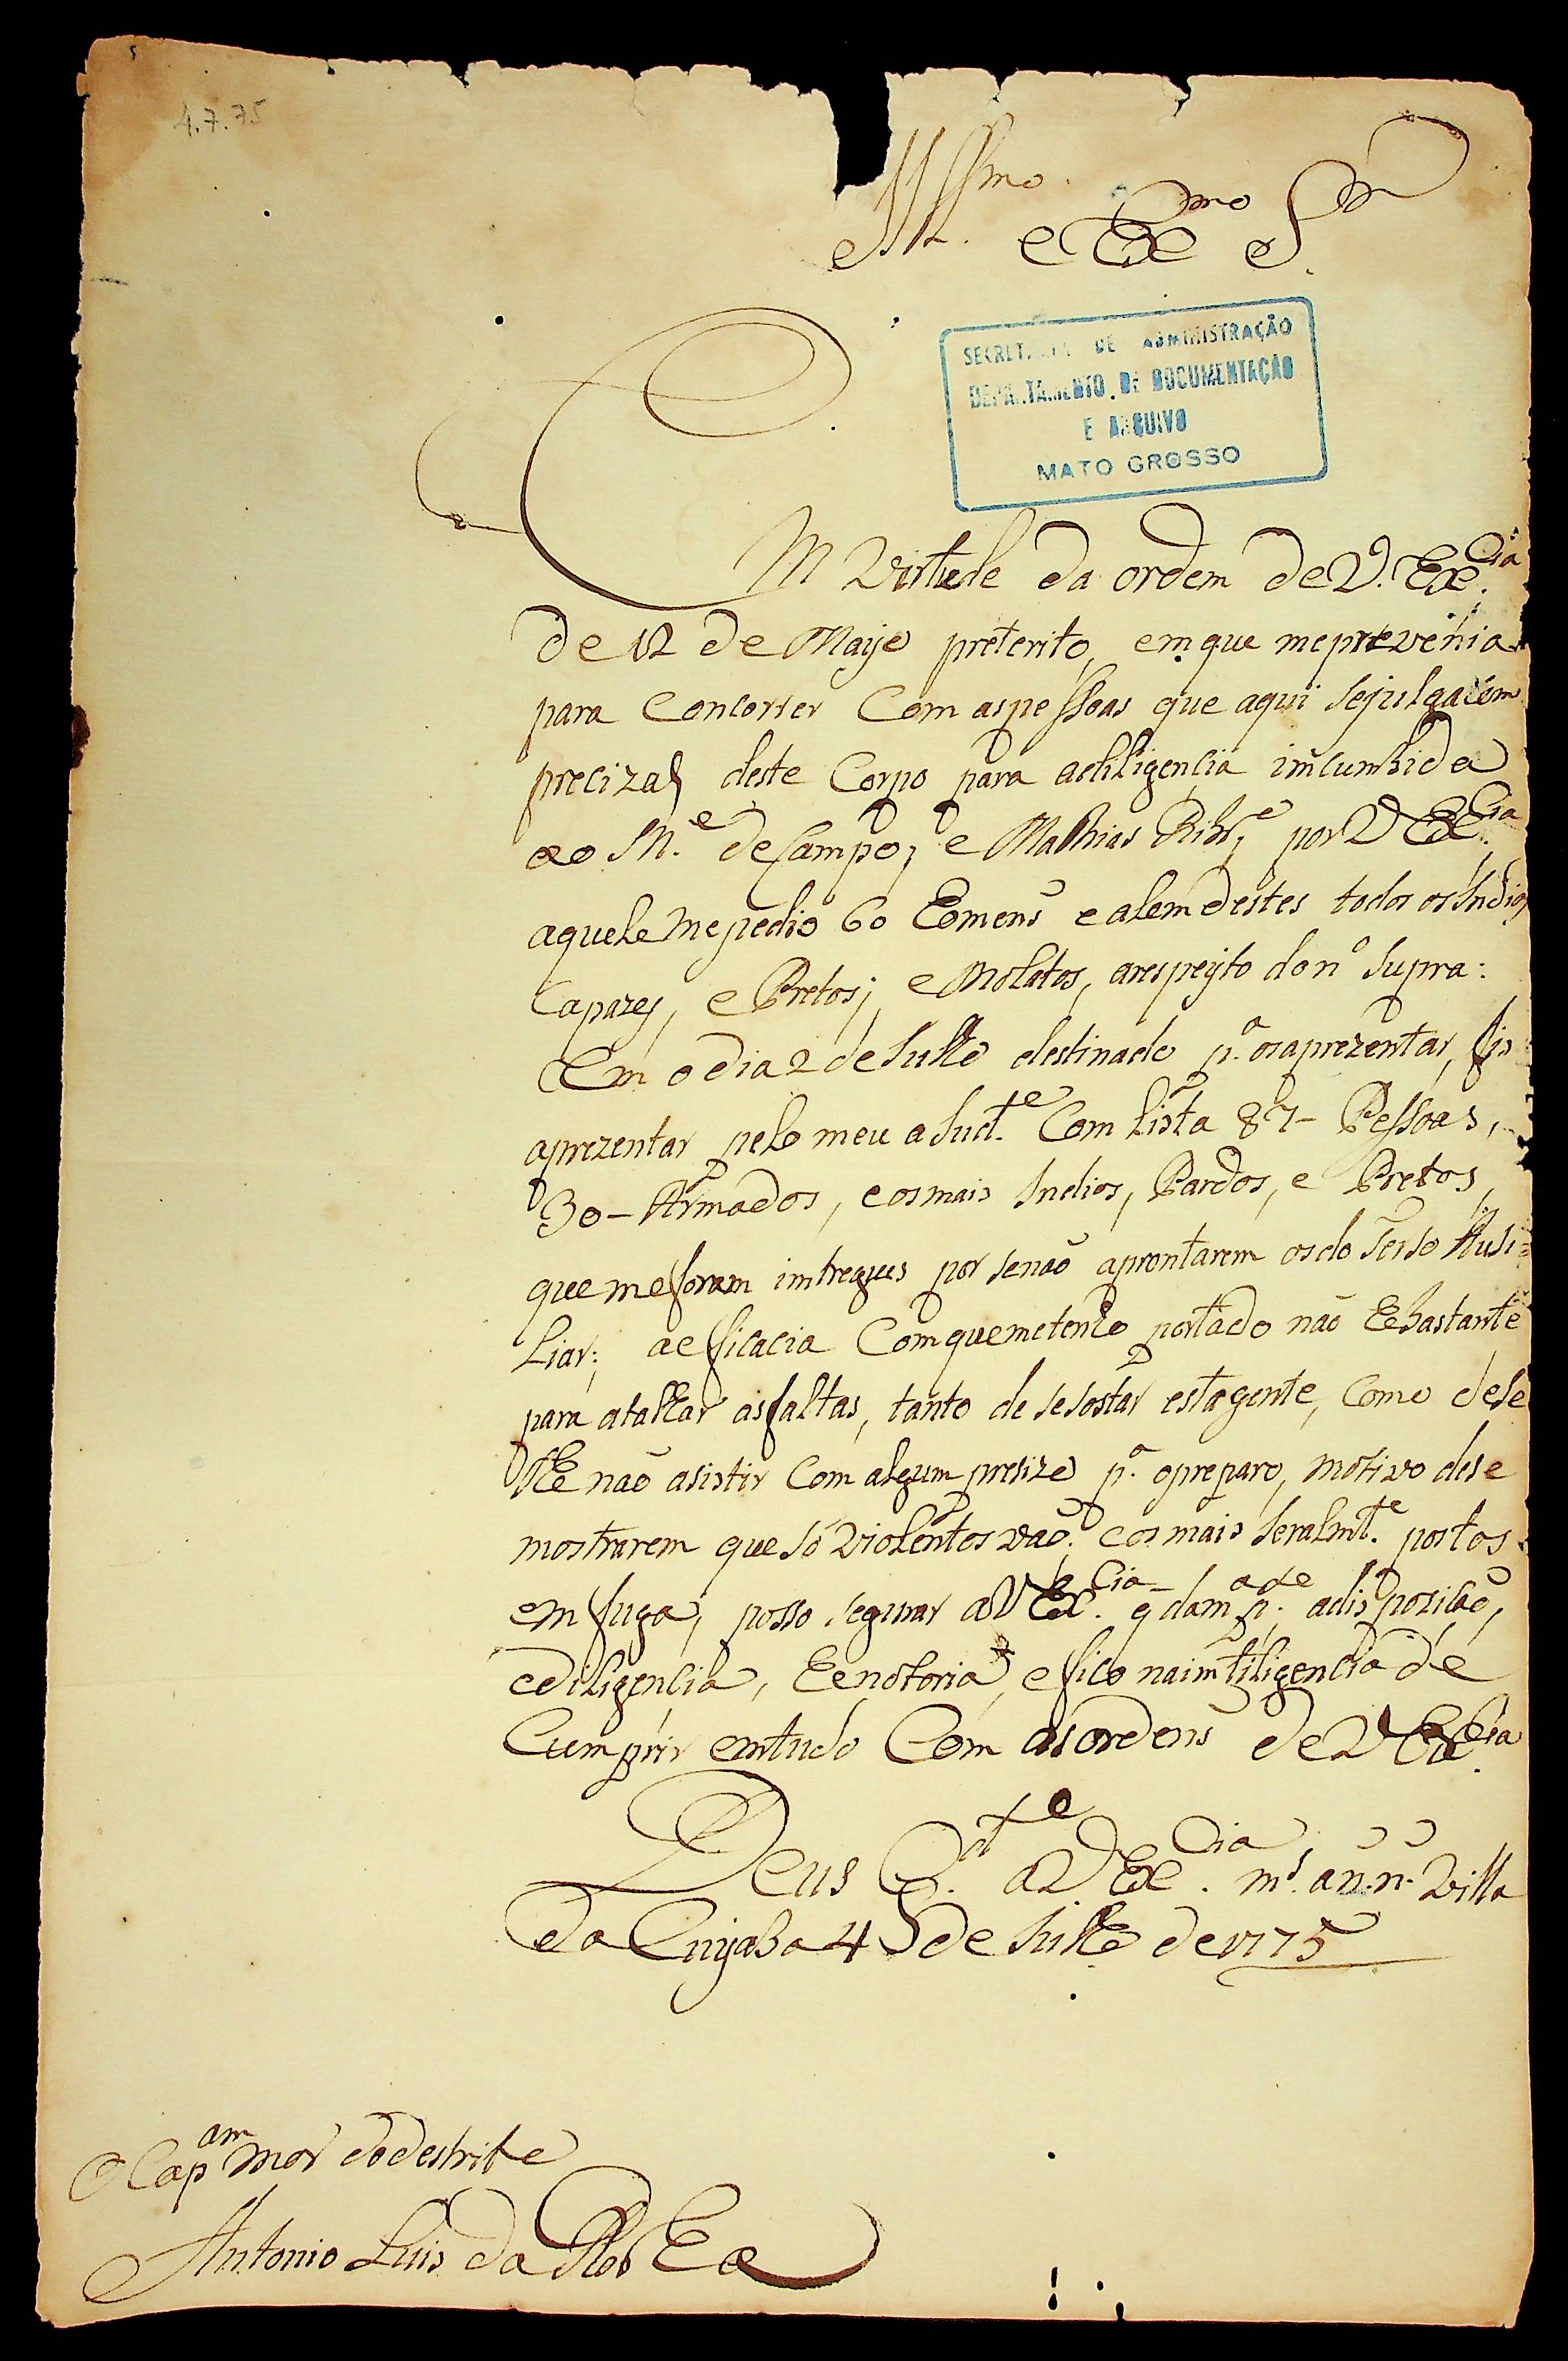 4.7.75
Illmo. e Exmo Sr.
SECRETARIA DE ADMINISTRAÇÃO
DEPARTAMENTO DE DOCUMENTAÇÃO
E ARQUIVO
MATO GROSSO
Em Virtude da ordem de V. Excia.
de 12 de Mayo preterito, em que me prevenia
para Concorrer Com as pessoas que aqui se julgacem
precizas deste Corpo para a diligencia imcumbida
ao M.e de Campo, e Mathias Ribr.e por V Excia.
aquele me pedio 60 Homens e alem destes todos os Indios
Capazes, e Pretos; e Molatos, a respeyto do nº Supra:
Em o dia 2 de Julho destinado p.a os aprezentar, fis
aprezentar pelo meu aJud.te Com lista 87 - Pessoas,
30 - Armados, e os mais Indios, Pardos, e Pretos,
que me foram imtregues por se não aprontarem os do Terso Ausi=
liar; a eficacia Com que me tenho portado não he bastante
para atalhar as faltas, tanto de se sostar esta gente, Como de se
lhe não asistir Com algum presizo p.a o preparo, motivo de se
mostrarem que só violentos vão; e os mais Seralmt.e postos
em fuga; posso segurar a V Excia. q da m.a p.te a disposição,
e diligencia, he notoria, e fico na imtiligencia de
Cumprir em tudo Com as ordens de V Excia.
Deus G.de a V Excia. m.s an.n. Villa
do Cuyaba 4 de Julho de 1775
O Capam Mor do destrito
Antonio Luis da Rocha